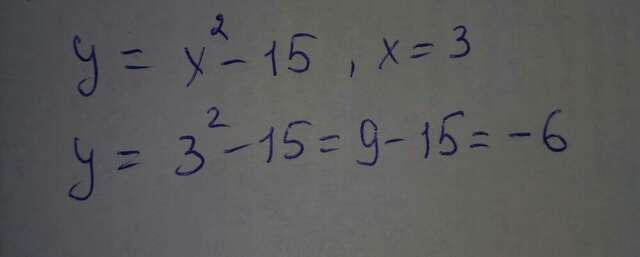 y = x² - 15, x = 3
y = 3² - 15 = 9 - 15 = -6